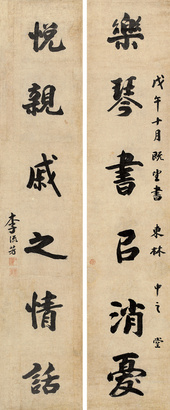 樂琴書以消憂
戊午十月既望書 東林中之堂
悅親戚之情話
李流芳